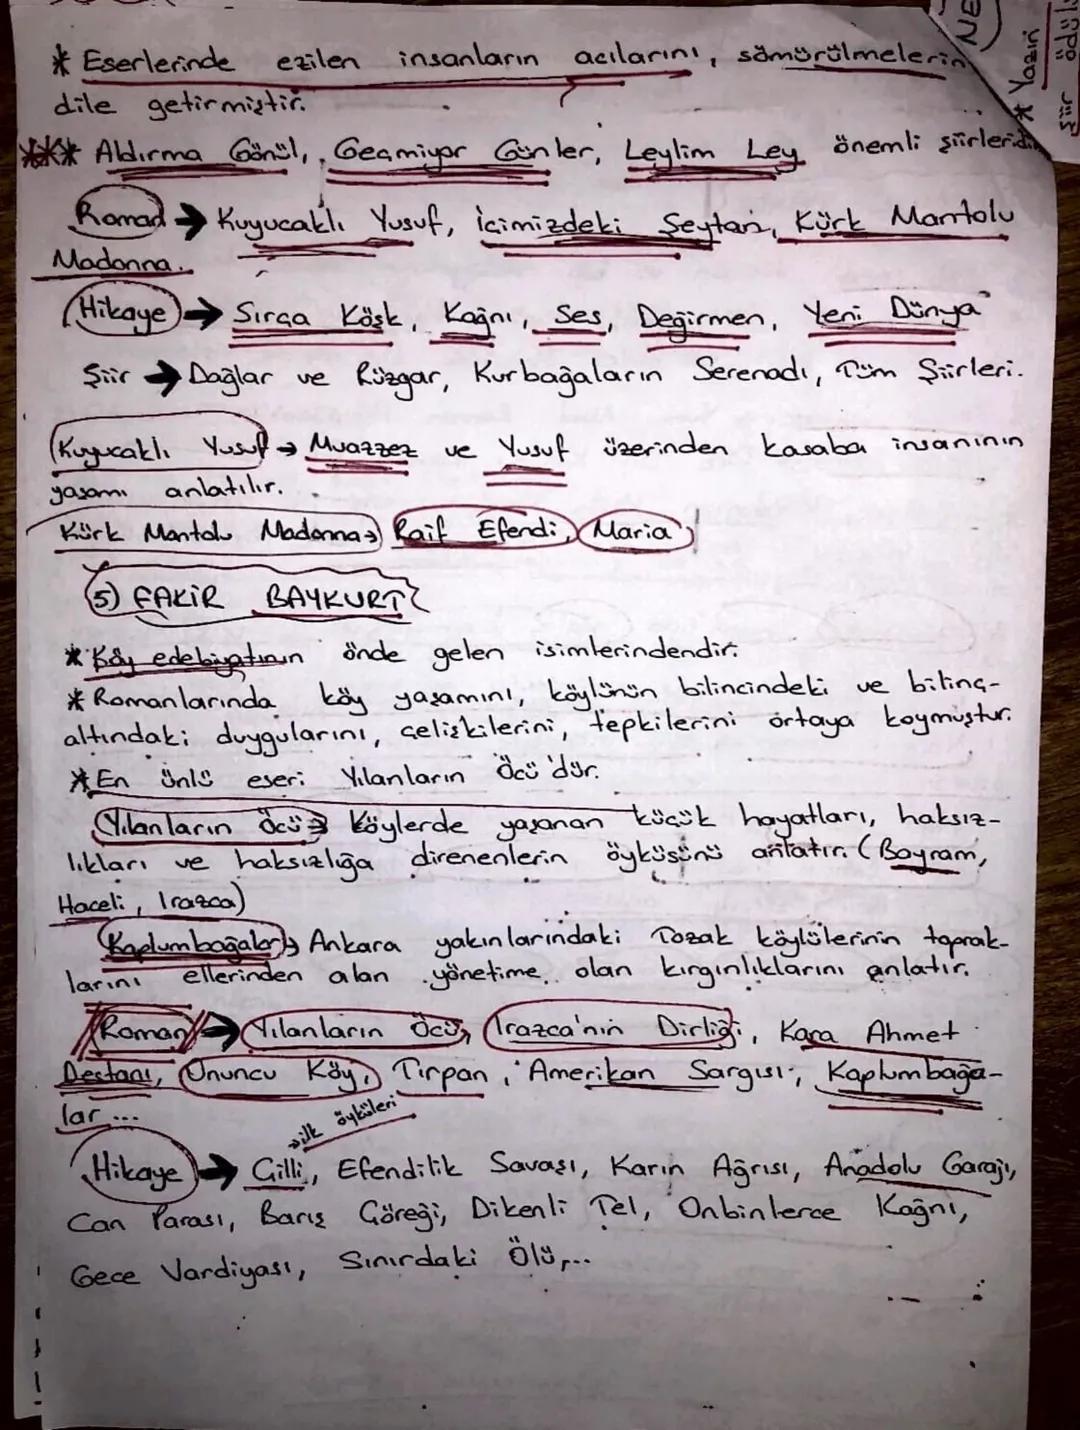 * Eserlerinde ezilen insanların acılarını, sömürülmelerin
dile getirmiştir.
*** Aldırma Gönül, Geçmiyor Günler, Leylim Ley önemli şiirleridir
Roman → Kuyucaklı Yusuf, İçimizdeki Şeytan, Kürk Mantolu
Madonna.
Hikaye → Sırça Köşk, Kağnı, Ses, Değirmen, Yeni Dünya
Şiir → Dağlar ve Rüzgar, Kurbağaların Serenadı, Tüm Şiirleri.
Kuyucaklı Yusuf → Muazzez ve Yusuf üzerinden kasaba insanının
yaşamı anlatılır.
Kürk Mantolu Madonna → Raif Efendi, Maria
5) FAKİR BAYKURT
* Köy edebiyatının önde gelen isimlerindendir.
* Romanlarında köy yaşamını, köylünün bilincindeki ve bilinç-
altındaki duygularını, çelişkilerini, tepkilerini ortaya koymuştur.
* En ünlü eseri Yılanların Öcü'dür.
Yılanların Öcü → Köylerde yaşanan küçük hayatları, haksız-
lıkları ve haksızlığa direnenlerin öyküsünü anlatır. (Bayram,
Haceli, Irazca)
Kaplumbağalar → Ankara yakınlarındaki Tozak köylülerinin toprak-
larını ellerinden alan yönetime olan kırgınlıklarını anlatır.
Roman → Yılanların Öcü, Irazca'nın Dirliği, Kara Ahmet
Destanı, Onuncu Köy, Tırpan, Amerikan Sargısı, Kaplumbağa-
lar...
→ ilk öyküleri
Hikaye → Çilli, Efendilik Savaşı, Karın Ağrısı, Anadolu Garajı,
Can Parası, Barış Çöreği, Dikenli Tel, Onbinlerce Kağnı,
Gece Vardiyası, Sınırdaki Ölü,...
NE
* Yazın
Şiir ödül